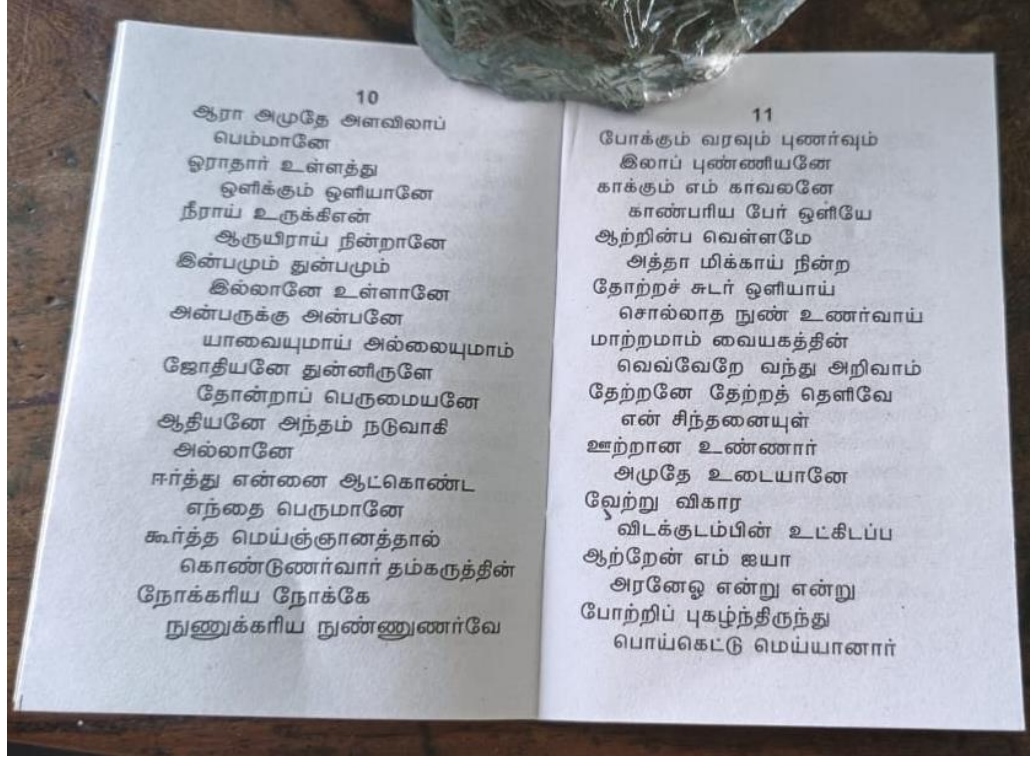 10
ஆரா அமுதே அளவிலாப்
பெம்மானே
ஓராதார் உள்ளத்து
ஒளிக்கும் ஒளியானே
நீராய் உருக்கிஎன்
ஆருயிராய் நின்றானே
இன்பமும் துன்பமும்
இல்லானே உள்ளானே
அன்பருக்கு அன்பனே
யாவையுமாய் அல்லையுமாம்
ஜோதியனே துன்னிருளே
தோன்றாப் பெருமையனே
ஆதியனே அந்தம் நடுவாகி
அல்லானே
ஈர்த்து என்னை ஆட்கொண்ட
எந்தை பெருமானே
கூர்த்த மெய்ஞ்ஞானத்தால்
கொண்டுணர்வார் தம்கருத்தின்
நோக்கரிய நோக்கே
நுணுக்கரிய நுண்ணுணர்வே
11
போக்கும் வரவும் புணர்வும்
இலாப் புண்ணியனே
காக்கும் எம் காவலனே
காண்பரிய பேர் ஒளியே
ஆற்றின்ப வெள்ளமே
அத்தா மிக்காய் நின்ற
தோற்றச் சுடர் ஒளியாய்
சொல்லாத நுண் உணர்வாய்
மாற்றமாம் வையகத்தின்
வெவ்வேறே வந்து அறிவாம்
தேற்றனே தேற்றத் தெளிவே
என் சிந்தனையுள்
ஊற்றான உண்ணார்
அமுதே உடையானே
வேற்று விகார
விடக்குடம்பின் உட்கிடப்ப
ஆற்றேன் எம் ஐயா
அரனேஓ என்று என்று
போற்றிப் புகழ்ந்திருந்து
பொய்கெட்டு மெய்யானார்